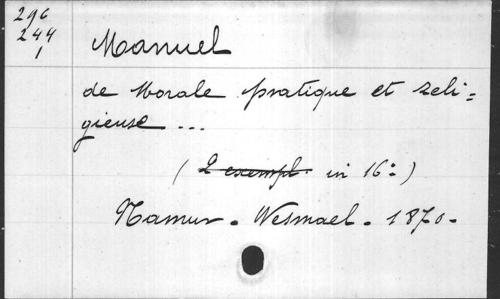 296
244
1
Manuel
de Morale pratique et reli=
gieuse ...
( 2 exempl. in 16:)
Namur - Wesmael - 1870-